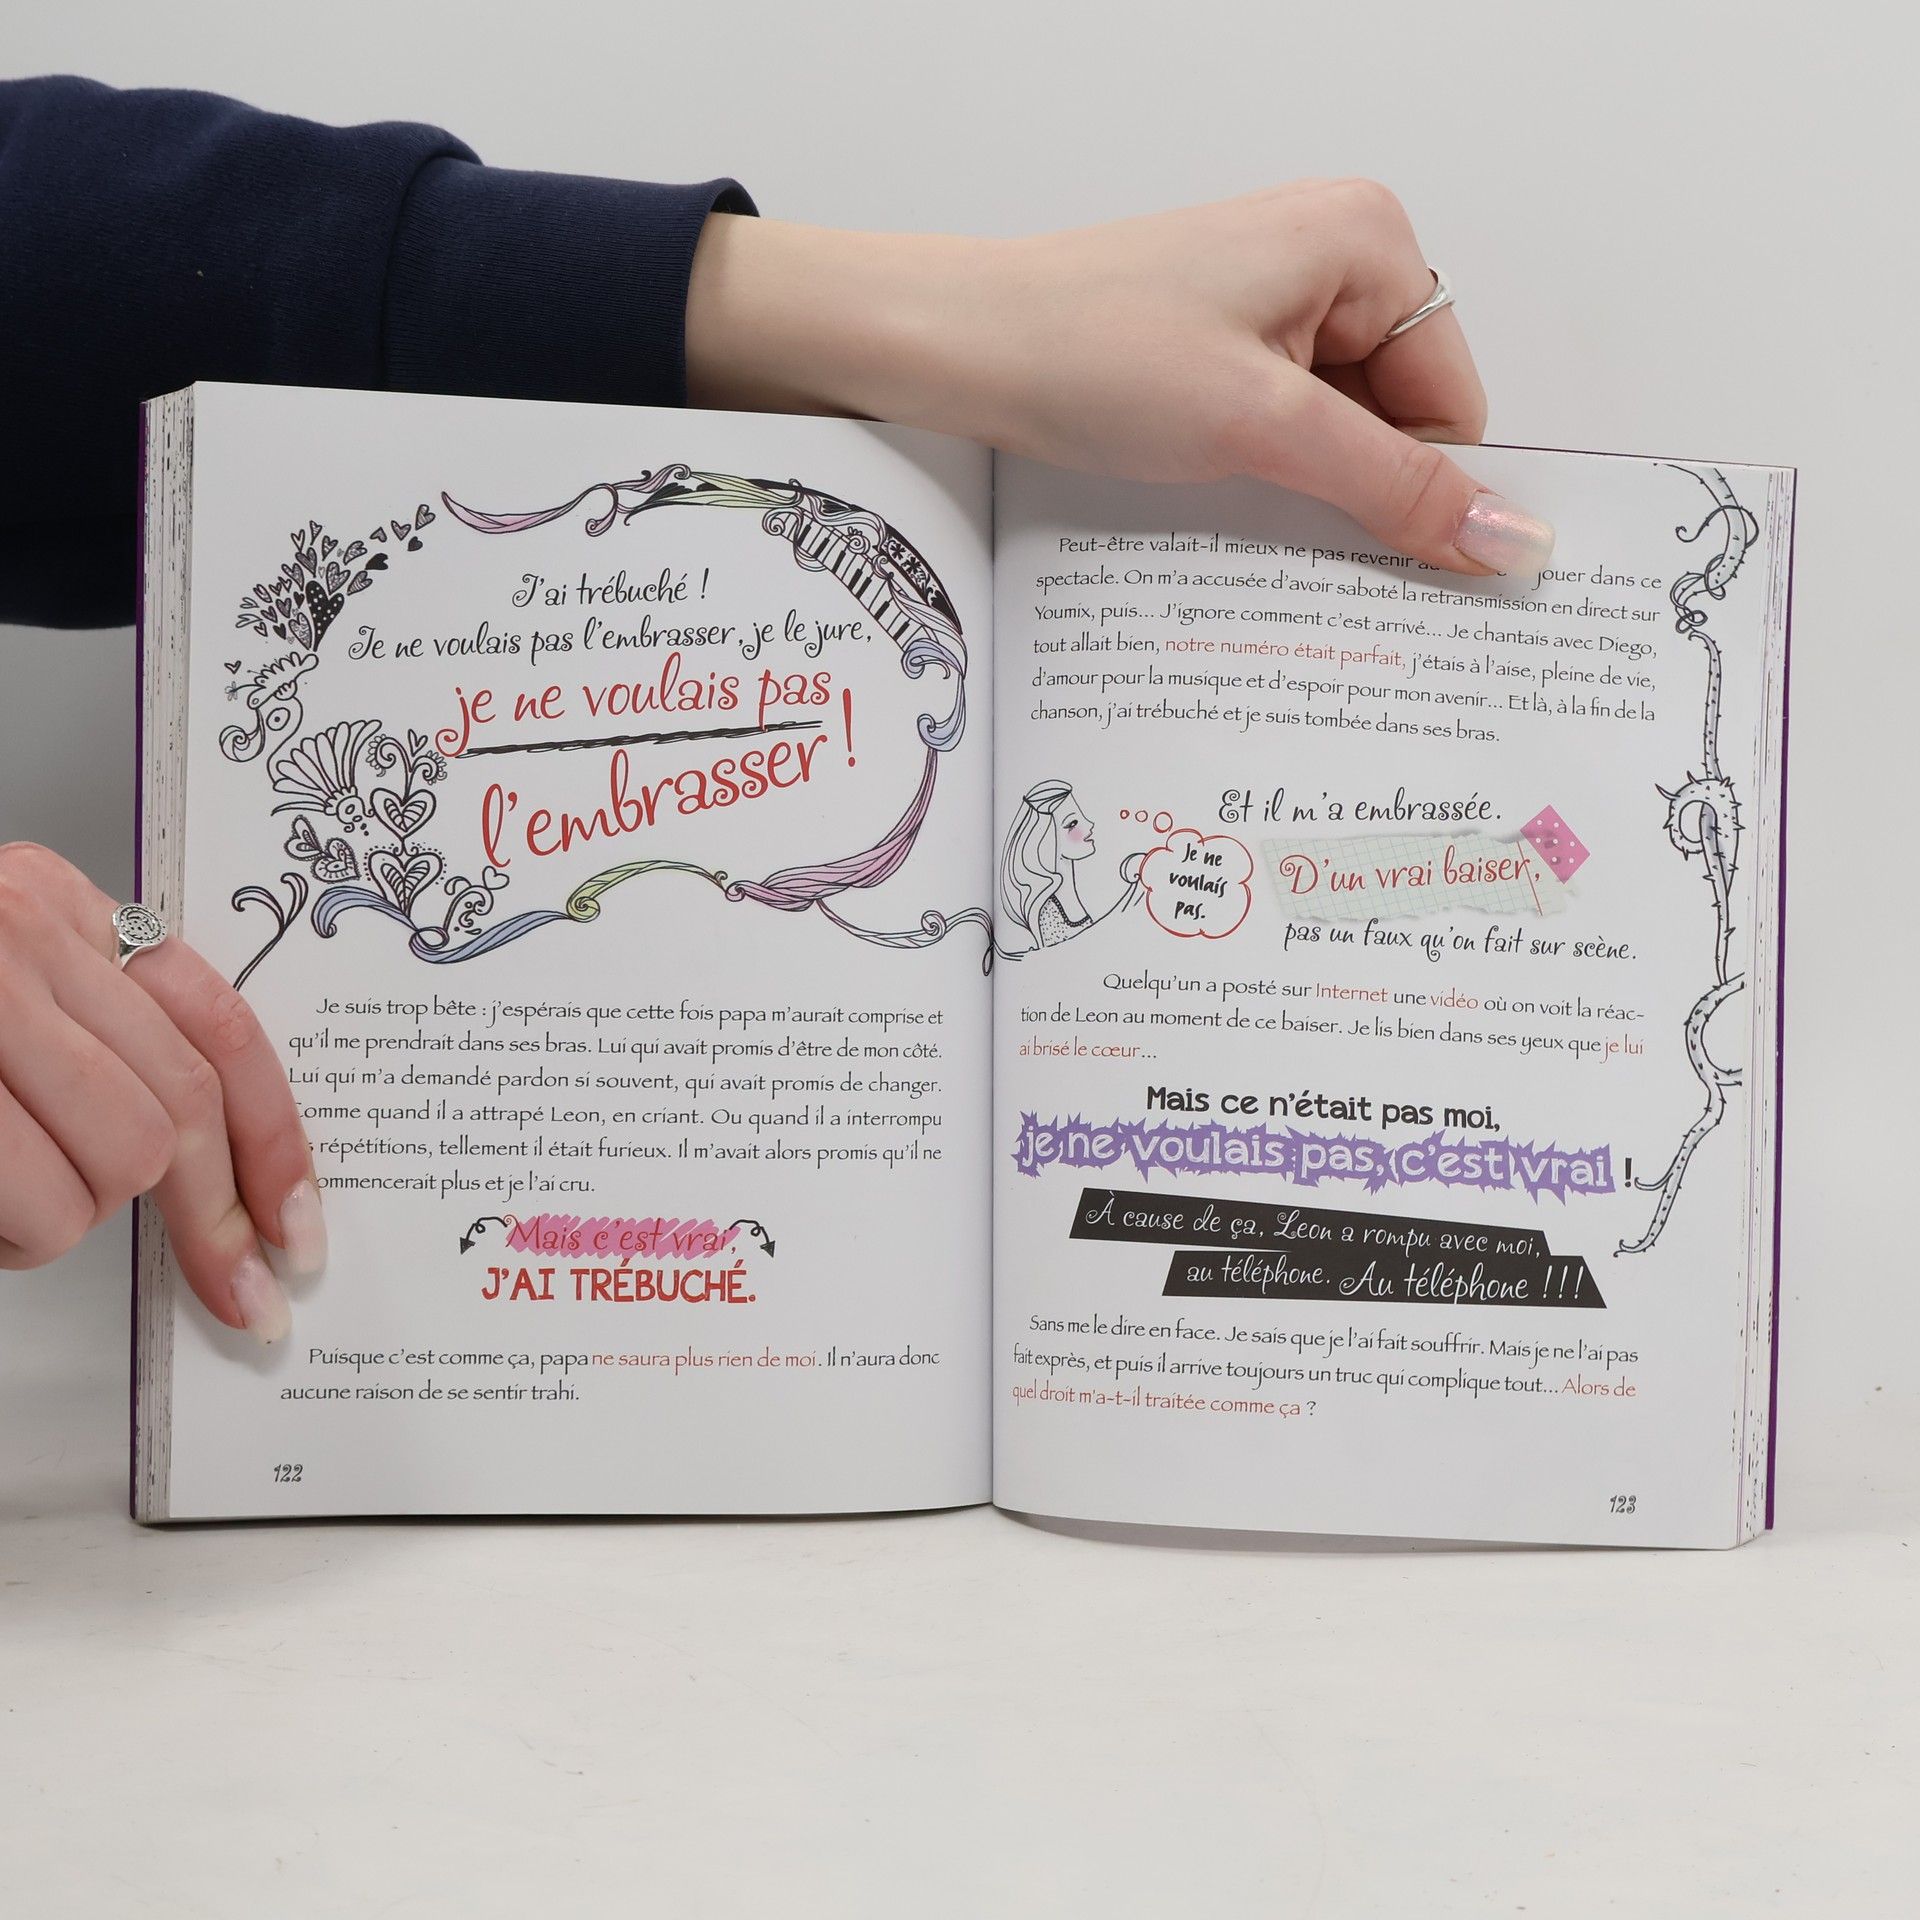 J'ai trébuché !
Je ne voulais pas l'embrasser, je le jure,
je ne voulais pas
l'embrasser !
Je suis trop bête : j'espérais que cette fois papa m'aurait comprise et
qu'il me prendrait dans ses bras. Lui qui avait promis d'être de mon côté.
Lui qui m'a demandé pardon si souvent, qui avait promis de changer.
Comme quand il a attrapé Leon, en criant. Ou quand il a interrompu
répétitions, tellement il était furieux. Il m'avait alors promis qu'il ne
ommencerait plus et je l'ai cru.
Mais c'est vrai,
J'AI TRÉBUCHÉ.
Puisque c'est comme ça, papa ne saura plus rien de moi. Il n'aura donc
aucune raison de se sentir trahi.
122
Peut-être valait-il mieux ne pas revenir jouer dans ce
spectacle. On m'a accusée d'avoir saboté la retransmission en direct sur
Youmix, puis... J'ignore comment c'est arrivé... Je chantais avec Diego,
tout allait bien, notre numéro était parfait, j'étais à l'aise, pleine de vie,
d'amour pour la musique et d'espoir pour mon avenir... Et là, à la fin de la
chanson, j'ai trébuché et je suis tombée dans ses bras.
Et il m'a embrassée.
Je ne
voulais
pas.
D'un vrai baiser,
pas un faux qu'on fait sur scène.
Quelqu'un a posté sur Internet une vidéo où on voit la réac-
tion de Leon au moment de ce baiser. Je lis bien dans ses yeux que je lui
ai brisé le cœur...
Mais ce n'était pas moi,
je ne voulais pas, c'est vrai !
À cause de ça, Leon a rompu avec moi,
au téléphone. Au téléphone !!!
Sans me le dire en face. Je sais que je l'ai fait souffrir. Mais je ne l'ai pas
fait exprès, et puis il arrive toujours un truc qui complique tout... Alors de
quel droit m'a-t-il traitée comme ça ?
123